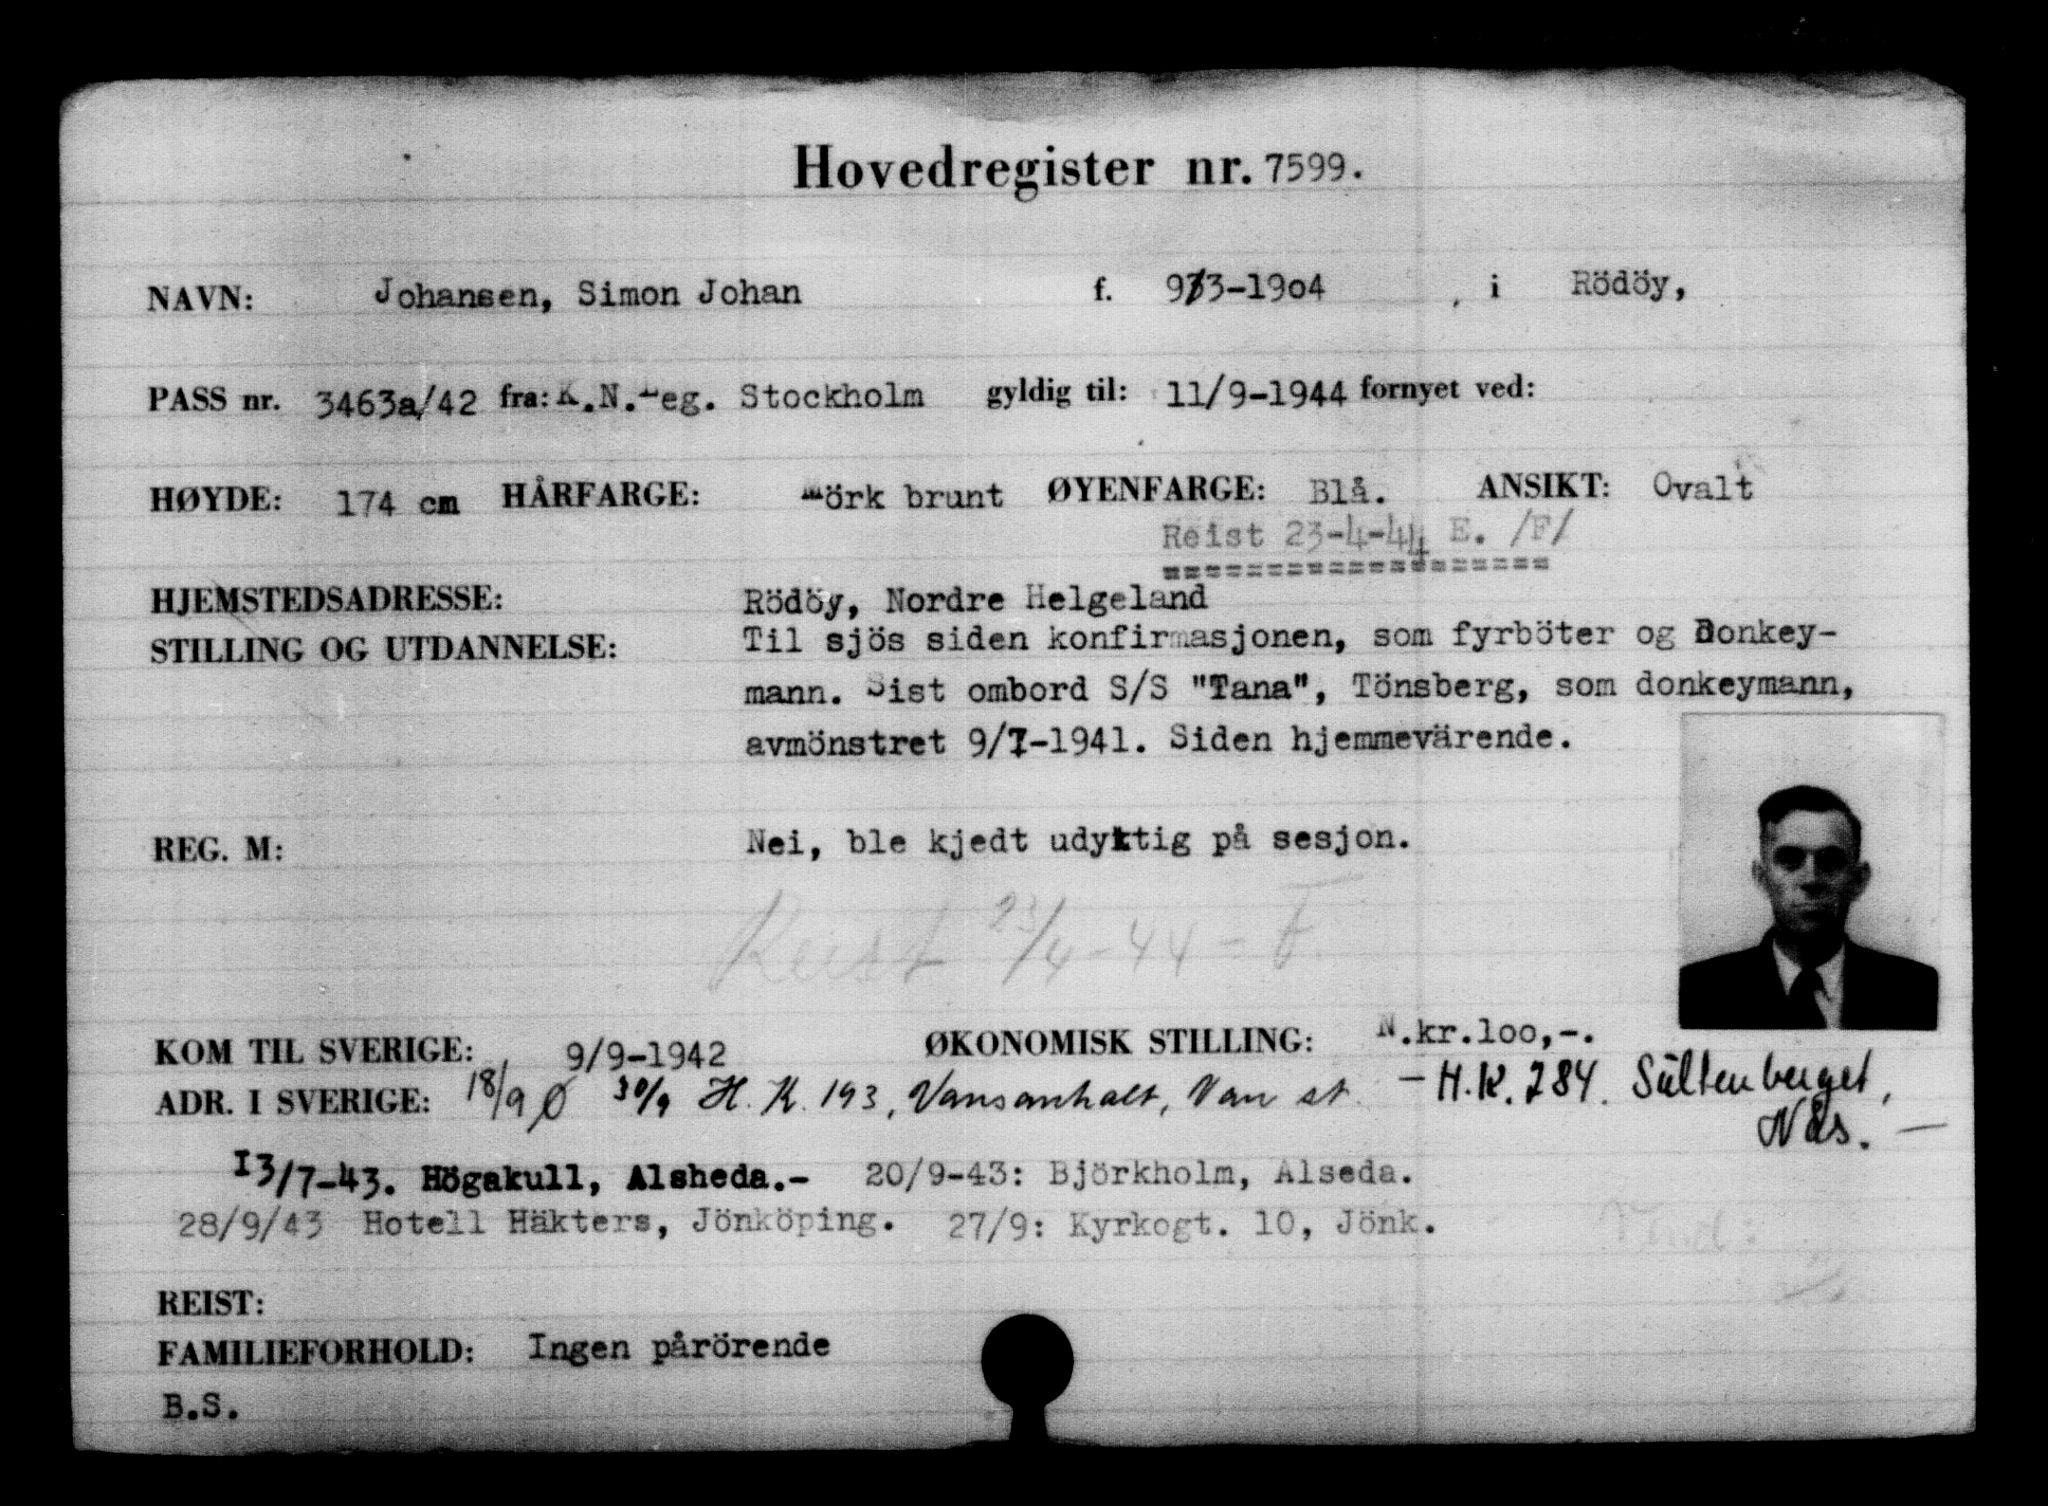 Hovedregister nr. 7599.
NAVN: Johansen, Simon Johan f. 9/3-1904, i Rödöy,
PASS nr. 3463a/42 fra: K.N.Leg. Stockholm gyldig til: 11/9-1944 fornyet ved:
HØYDE: 174 cm HÅRFARGE: mörk brunt ØYENFARGE: Blå. ANSIKT: Ovalt
Reist 23-4-44 E. /F/
==================
HJEMSTEDSADRESSE: Rödöy, Nordre Helgeland
STILLING OG UTDANNELSE: Til sjös siden konfirmasjonen, som fyrböter og Donkey-
mann. Sist ombord S/S "Tana", Tönsberg, som donkeymann,
avmönstret 9/7-1941. Siden hjemmevärende.
REG. M: Nei, ble kjedt udyktig på sesjon.
Reist 23/4-44 = F.
KOM TIL SVERIGE: 9/9-1942 ØKONOMISK STILLING: N.kr.loo,-.
ADR. I SVERIGE: 18/9 Ø 30/9 H.K. 193, Vansanhalt, Van st. - H.K. 284. Sültenberget,
Nås. -
I3/7-43. Högakull, Alsheda.- 20/9-43: Björkholm, Alseda.
28/9/43 Hotell Häkters, Jönköping. 27/9: Kyrkogt. 10, Jönk.
Vend:
REIST:
FAMILIEFORHOLD: Ingen pårörende
B.S.